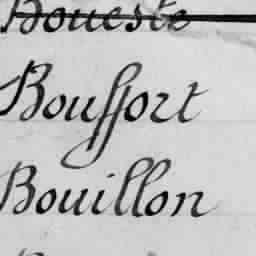 Boueste
Bouffort
Bouillon